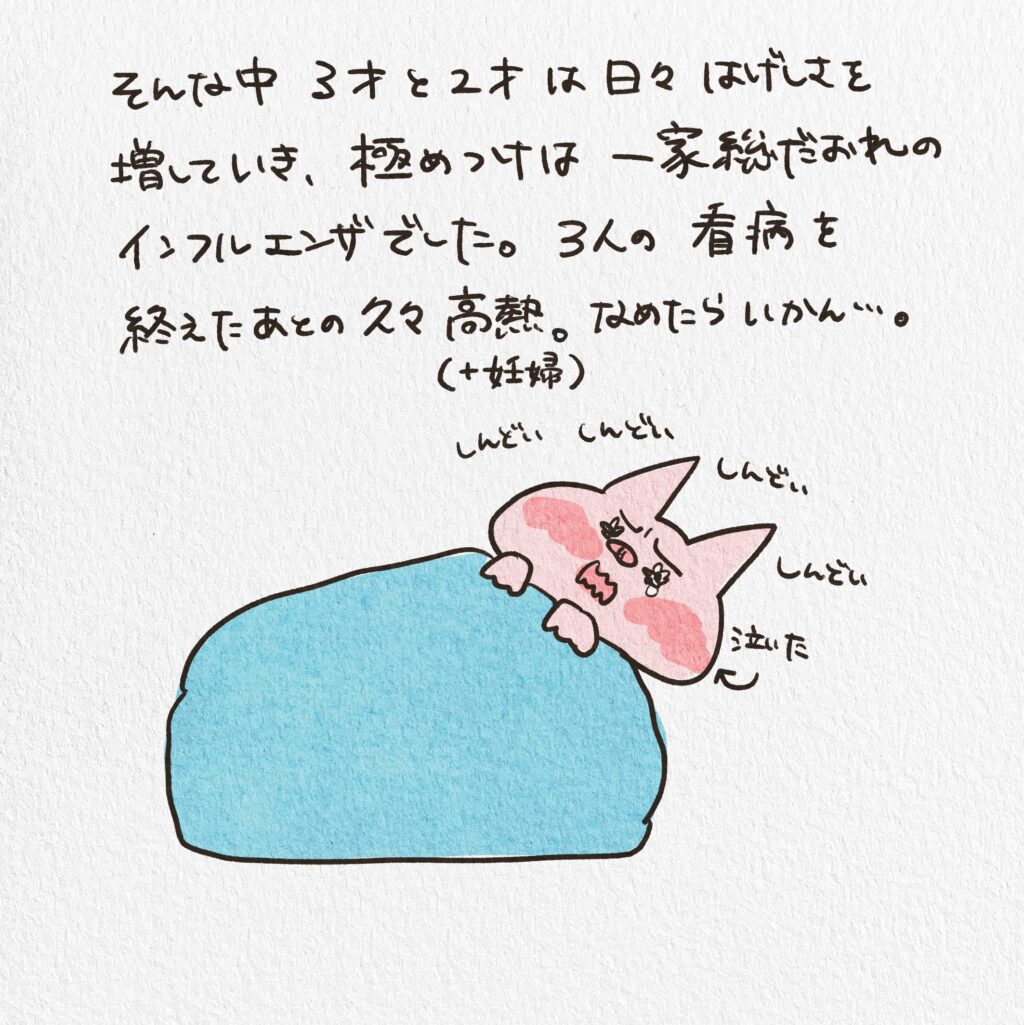 そんな中 3才と2才は日々はげしさを
増していき、極めつけは 一家総だおれの
インフルエンザでした。3人の看病を
終えたあとの久々高熱。なめたらいかん…。
(+妊婦)
しんどい しんどい
しんどい
しんどい
泣いた